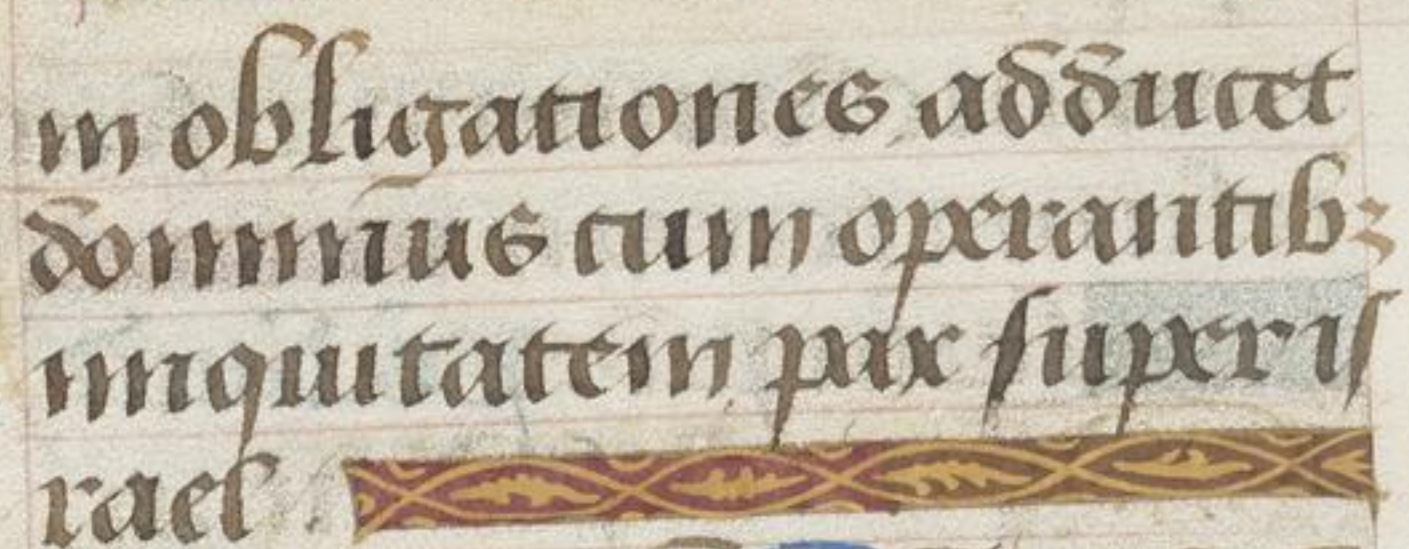 in obligationes adducet
dominus cum operantibꝫ
iniquitatem pax super iſ
rael